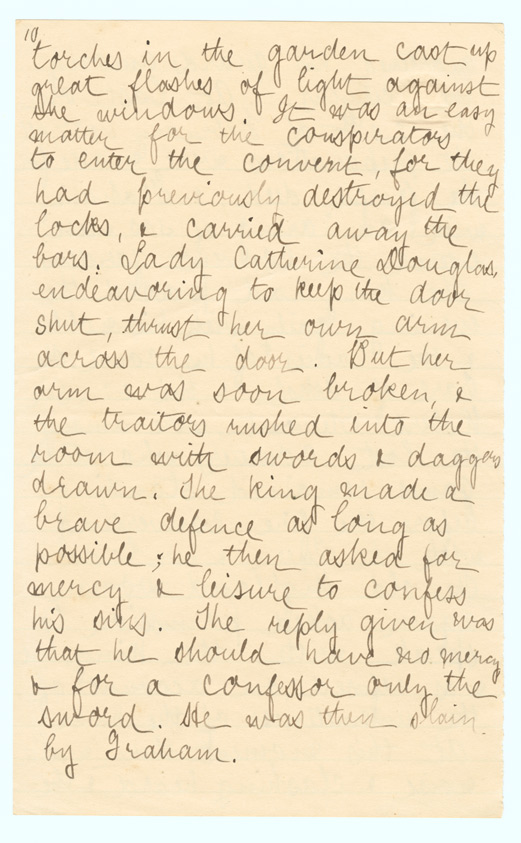 10
torches in the garden cast up
great flashes of light against
the windows. It was an easy
matter for the conspirators
to enter the convent, for they
had previously destroyed the
locks, & carried away the
bars. Lady Catherine Douglas,
endeavoring to keep the door
shut, thrust her own arm
across the door. But her
arm was soon broken, &
the traitors rushed into the
room with swords & daggers
drawn. The king made a
brave defence as long as
possible; he then asked for
mercy & leisure to confess
his sins. The reply given was
that he should have no mercy
& for a confessor only the
sword. He was then slain
by Graham.